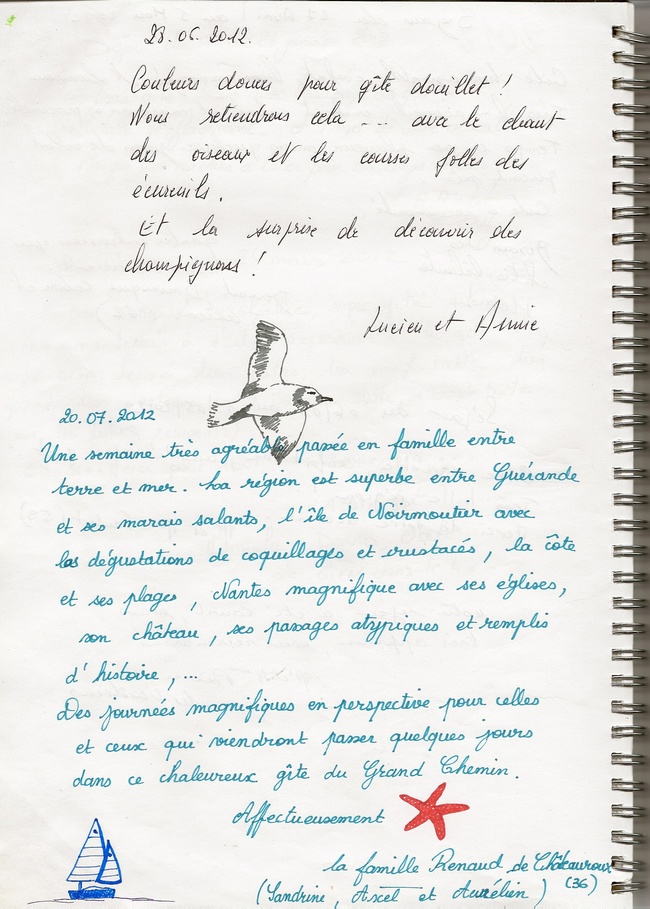 28.06.2012.
Couleurs douces pour gîte douillet !
Nous retiendrons cela ... avec le chant
des oiseaux et les courses folles des
écureuils.
Et la surprise de découvrir des
champignons !
Lucien et Annie
20.07.2012
Une semaine très agréable passée en famille entre
terre et mer. La région est superbe entre Guérande
et ses marais salants, l'île de Noirmoutier avec
les dégustations de coquillages et crustacés, la côte
et ses plages, Nantes magnifique avec ses églises,
son château, ses passages atypiques et remplis
d'histoire, ...
Des journées magnifiques en perspective pour celles
et ceux qui viendront passer quelques jours
dans ce chaleureux gîte du Grand Chemin.
Affectueusement
la famille Renaud de Châteauroux
(36)
(Sandrine, Axel et Aurélien)